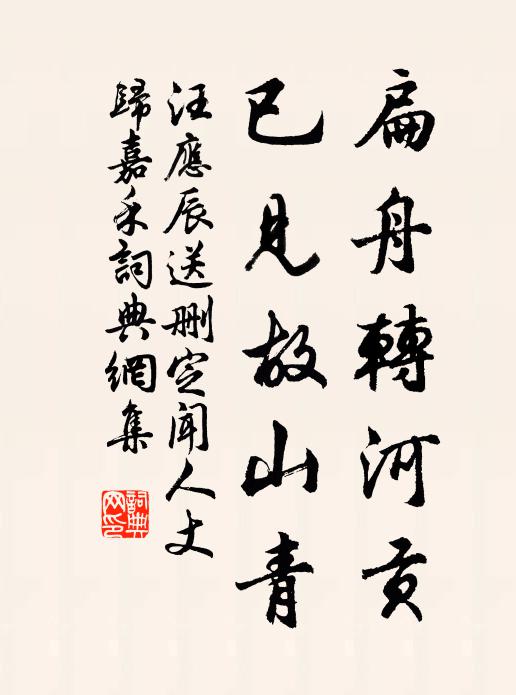 扁舟轉河貢
已見故山青
汪應辰送刪定聞人丈
歸嘉禾詞典網集
詞典
网印